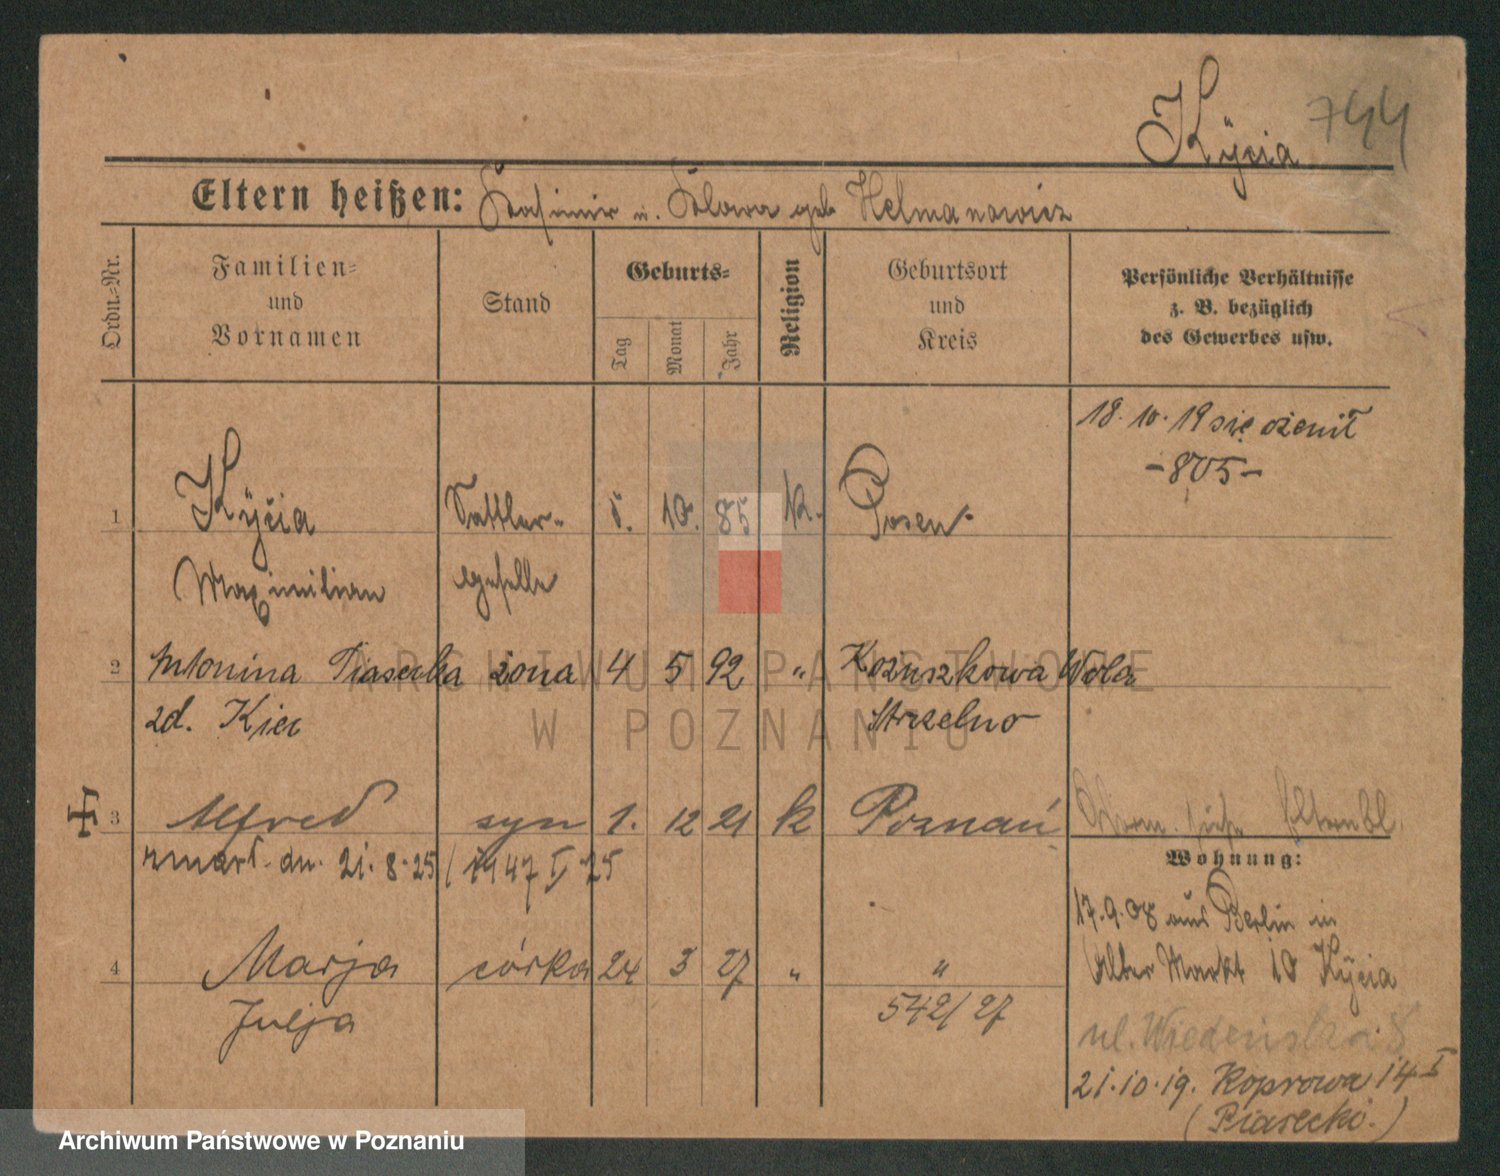 744
Kÿcia
Eltern heißen: Kasimir u. Klara geb Helmanowicz
Ordn.-Nr.
Familien- und Vornamen
Stand
Geburts-
Tag
Monat
Jahr
Religion
Geburtsort und Kreis
Persönliche Verhältnisse
z. B. bezüglich
des Gewerbes usw.
18. 10. 19 się ożenił
-805-
1 Kÿcia Sattler- 5. 10. 85 k. Posen
Maximilian geselle
2 Antonina żona 4 5 92 " Kożuszkowa Wola
zd. Kier Strzelno
3 Alfred syn 1. 12 21 k Poznań
zmarł. dn. 21. 8. 25
Wohnung:
17. 9. 08 aus Berlin in
Alter Markt 10 Kÿcia
4 Marja córka 24 3 27 " "
Julja 542/27
ul. Wiedeńska 8
21. 10. 19. Koprowa 14 I
(Piasecki.)
ARCHIWUM PAŃSTWOWE
W POZNANIU
Archiwum Państwowe w Poznaniu